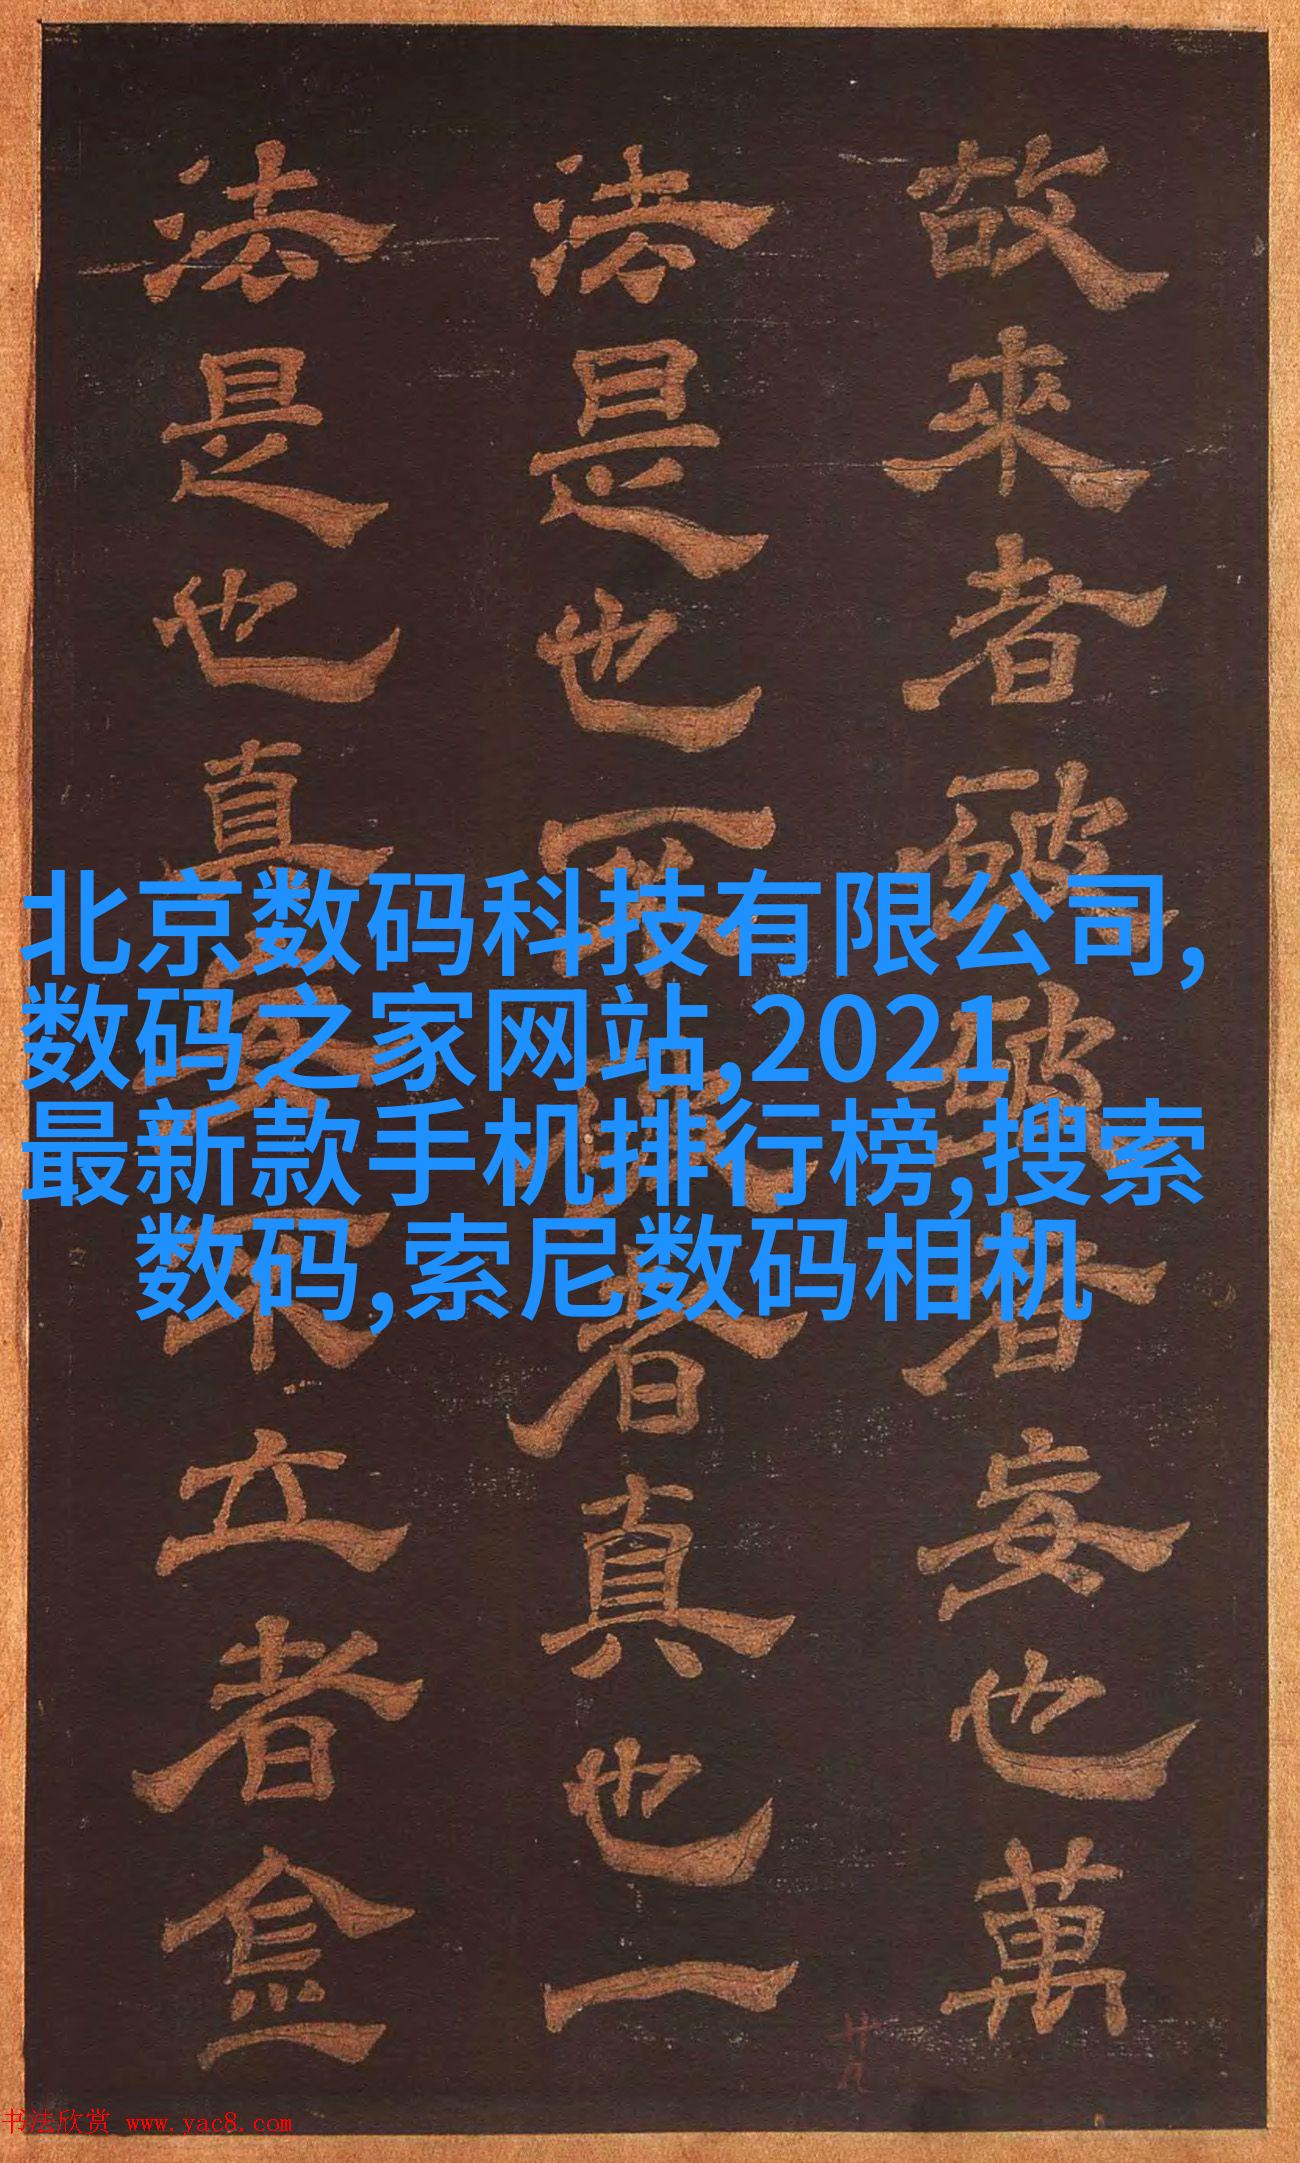 故來者破破者妄也萬
法是也不者真也一
法是也真不立者
北京数码科技有限公司,
数码之家网站,2021
最新款手机排行榜,搜索
数码,索尼数码相机
廿九
书法欣赏 www.yac8.com